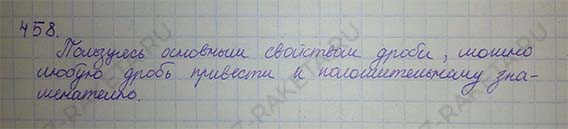 458.
Пользуясь основным свойством дроби, можно
любую дробь привести к положительному зна-
менателю.
Z-RAKETA.RU